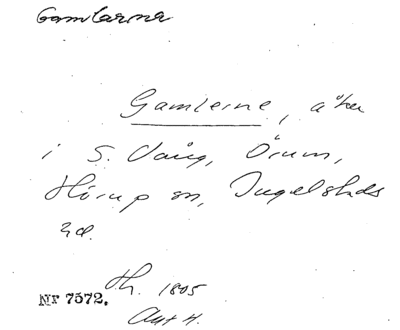 Gamlarna
Gamlerne, åker
i S. Vång, Örum,
Hörup sn, Ingelstads
hd.
Th. 1805
Nr 7572.
Akt 4.